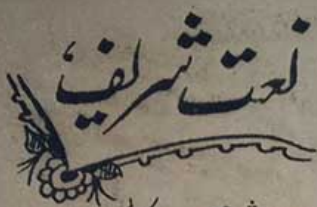 نعت شریف